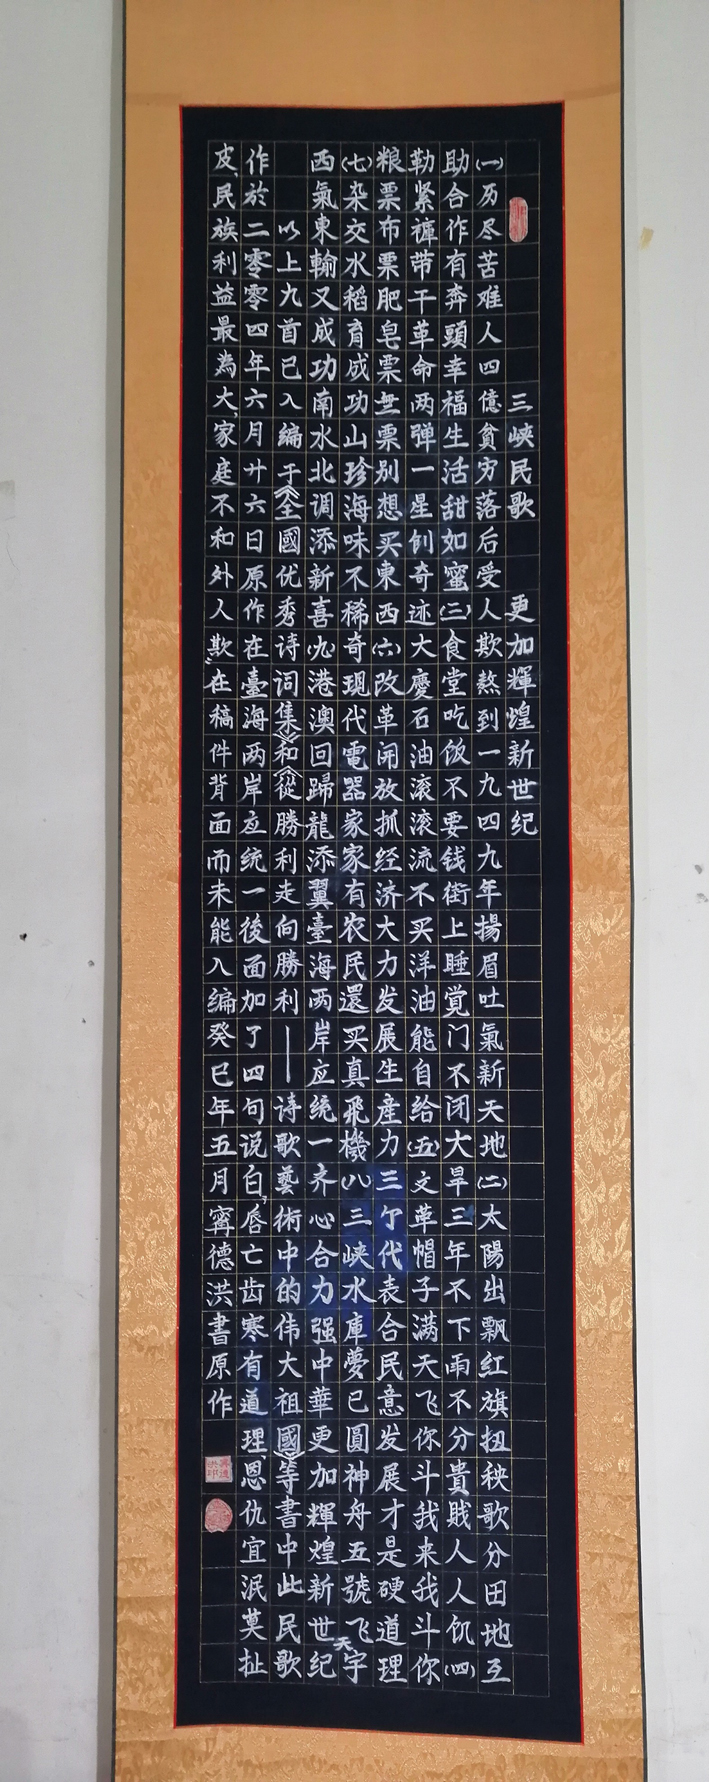 三峡民歌 更加輝煌新世纪
(一)历尽苦难人四億貧穷落后受人欺熬到一九四九年揚眉吐氣新天地(二)太陽出飘红旗扭秧歌分田地互
助合作有奔頭幸福生活甜如蜜(三)食堂吃饭不要钱街上睡觉门不闭大旱三年不下雨不分貴賎人人饥(四)
勒紧褲带干革命两弹一星创奇迹大慶石油滚滚流不买洋油能自给(五)文革帽子满天飞你斗我来我斗你
粮票布票肥皂票無票别想买東西(六)改革開放抓经济大力发展生產力三个代表合民意发展才是硬道理
(七)杂交水稻育成功山珍海味不稀奇現代電器家家有农民還买真飛機(八)三峡水庫夢已圓神舟五號飞天宇
西氣東輸又成功南水北调添新喜(九)港澳回歸龍添翼臺海两岸应统一齐心合力强中華更加輝煌新世纪
以上九首已入编于《全國优秀诗词集》和《從勝利走向勝利——诗歌藝術中的伟大祖國》等書中此民歌
作於二零零四年六月廿六日原作在臺海两岸应统一後面加了四句说白,唇亡齿寒有道理恩仇宜泯莫扯
皮、民族利益最為大、家庭不和外人欺、在稿件背面而未能入编癸巳年五月寗德洪書原作